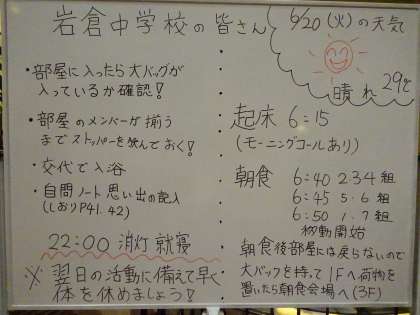 岩倉中学校の皆さん
・部屋に入ったら大バッグが
入っているか確認!
・部屋のメンバーが揃う
までストッパーを挟んでおく!
・交代で入浴
・自問ノート思い出の記入
(しおりP41.42)
22:00 消灯就寝
※翌日の活動に備えて早く
体を休めましょう!
6/20(火)の天気
晴れ 29℃
起床 6:15
(モーニングコールあり)
朝食 6:40 2.3.4組
6:45 5.6組
6:50 1.7組
移動開始
朝食後部屋には戻らないので
大バックを持って1Fへ荷物を
置いたら朝食会場へ(3F)